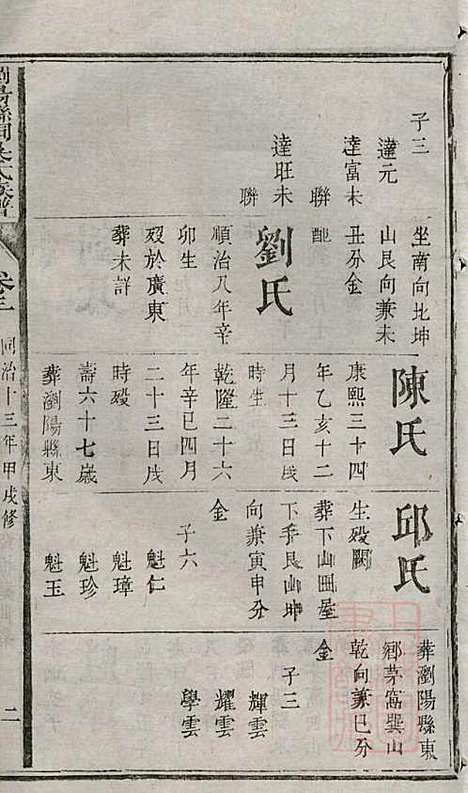 子三
達元
達富未
聯
達旺未
聯
坐南向北坤
山艮向兼未
丑分金
配
劉氏
順治八年辛
卯生
歿於廣東
葬未詳
陳氏
康熙三十四
年乙亥十二
月十三日戌
時生
乾隆二十六
年辛巳四月
二十三日戌
時歿
壽六十七歲
葬瀏陽縣東
邱氏
生歿闕
葬下山田屋
下手艮山坤
向兼寅申分
金
子六
魁仁
魁璋
魁珍
魁玉
葬瀏陽縣東
鄉茅富巽山
乾向兼巳分
金
子三
輝雲
耀雲
學雲
卷三
同治十三年甲戌修
二